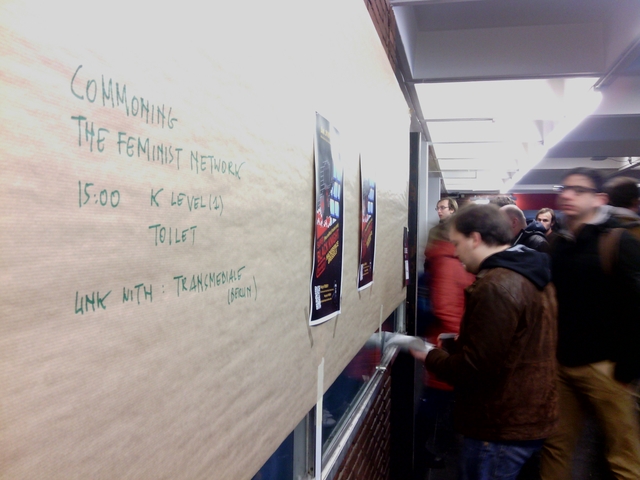 COMMONING
THE FEMINIST NETWORK
15:00 K LEVEL(1)
TOILET
LINK WITH : TRANSMEDIALE
(BERLIN)